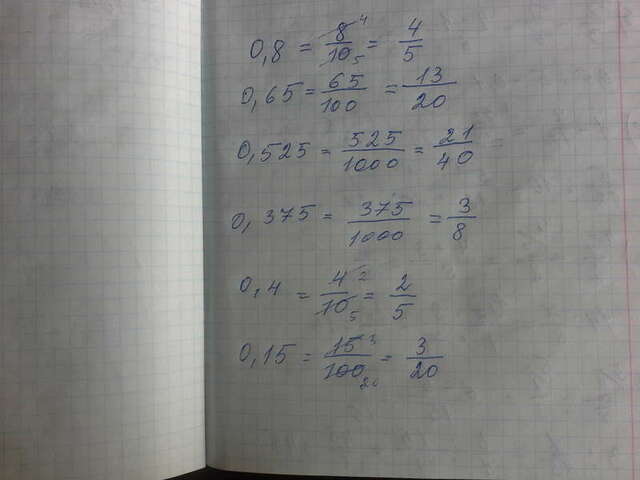 0,8 = 8/10 4 5 = 4/5
0,65 = 65/100 = 13/20
0,525 = 525/1000 = 21/40
0,375 = 375/1000 = 3/8
0,4 = 4/10 2 5 = 2/5
0,15 = 15/100 3 20 = 3/20